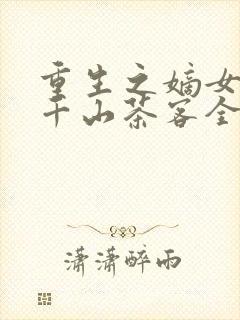 重生之嫡女
千山茶客全
潇潇醉雨